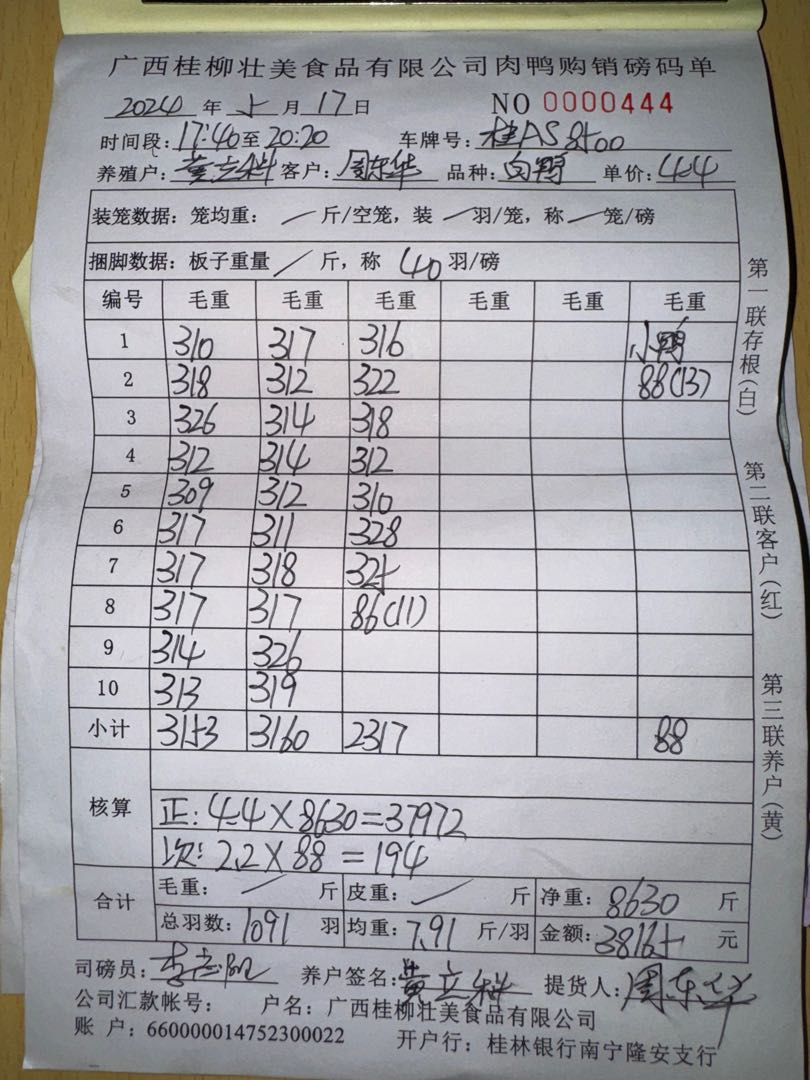 广西桂柳壮美食品有限公司肉鸭购销磅码单
2024 年 5 月 17 日 NO 0000444
时间段: 17:40 至 20:20 车牌号: 桂AS8500
养殖户: 黄立科 客户: 周东华 品种: 白鸭 单价: 4.4
装笼数据: 笼均重: / 斤/空笼, 装 / 羽/笼, 称 / 笼/磅
捆脚数据: 板子重量 / 斤, 称 40 羽/磅
编号 毛重 毛重 毛重 毛重 毛重 毛重
1 310 317 316 小鸭
2 318 312 322 88(13)
3 326 314 318
4 312 314 312
5 309 312 310
6 317 311 328
7 317 318 325
8 317 317 86(11)
9 314 326
10 313 319
小计 3153 3160 2317 88
核算
正: 4.4×8630=37972
次: 2.2×88=194
合计
毛重: / 斤 皮重: / 斤 净重: 8630 斤
总羽数: 1091 羽 均重: 7.91 斤/羽 金额: 38165 元
司磅员: 养户签名: 黄立科 提货人: 周东华
公司汇款帐号: 户名: 广西桂柳壮美食品有限公司
账 户: 660000014752300022 开户行: 桂林银行南宁隆安支行
第一联存根(白)
第二联客户(红)
第三联养户(黄)